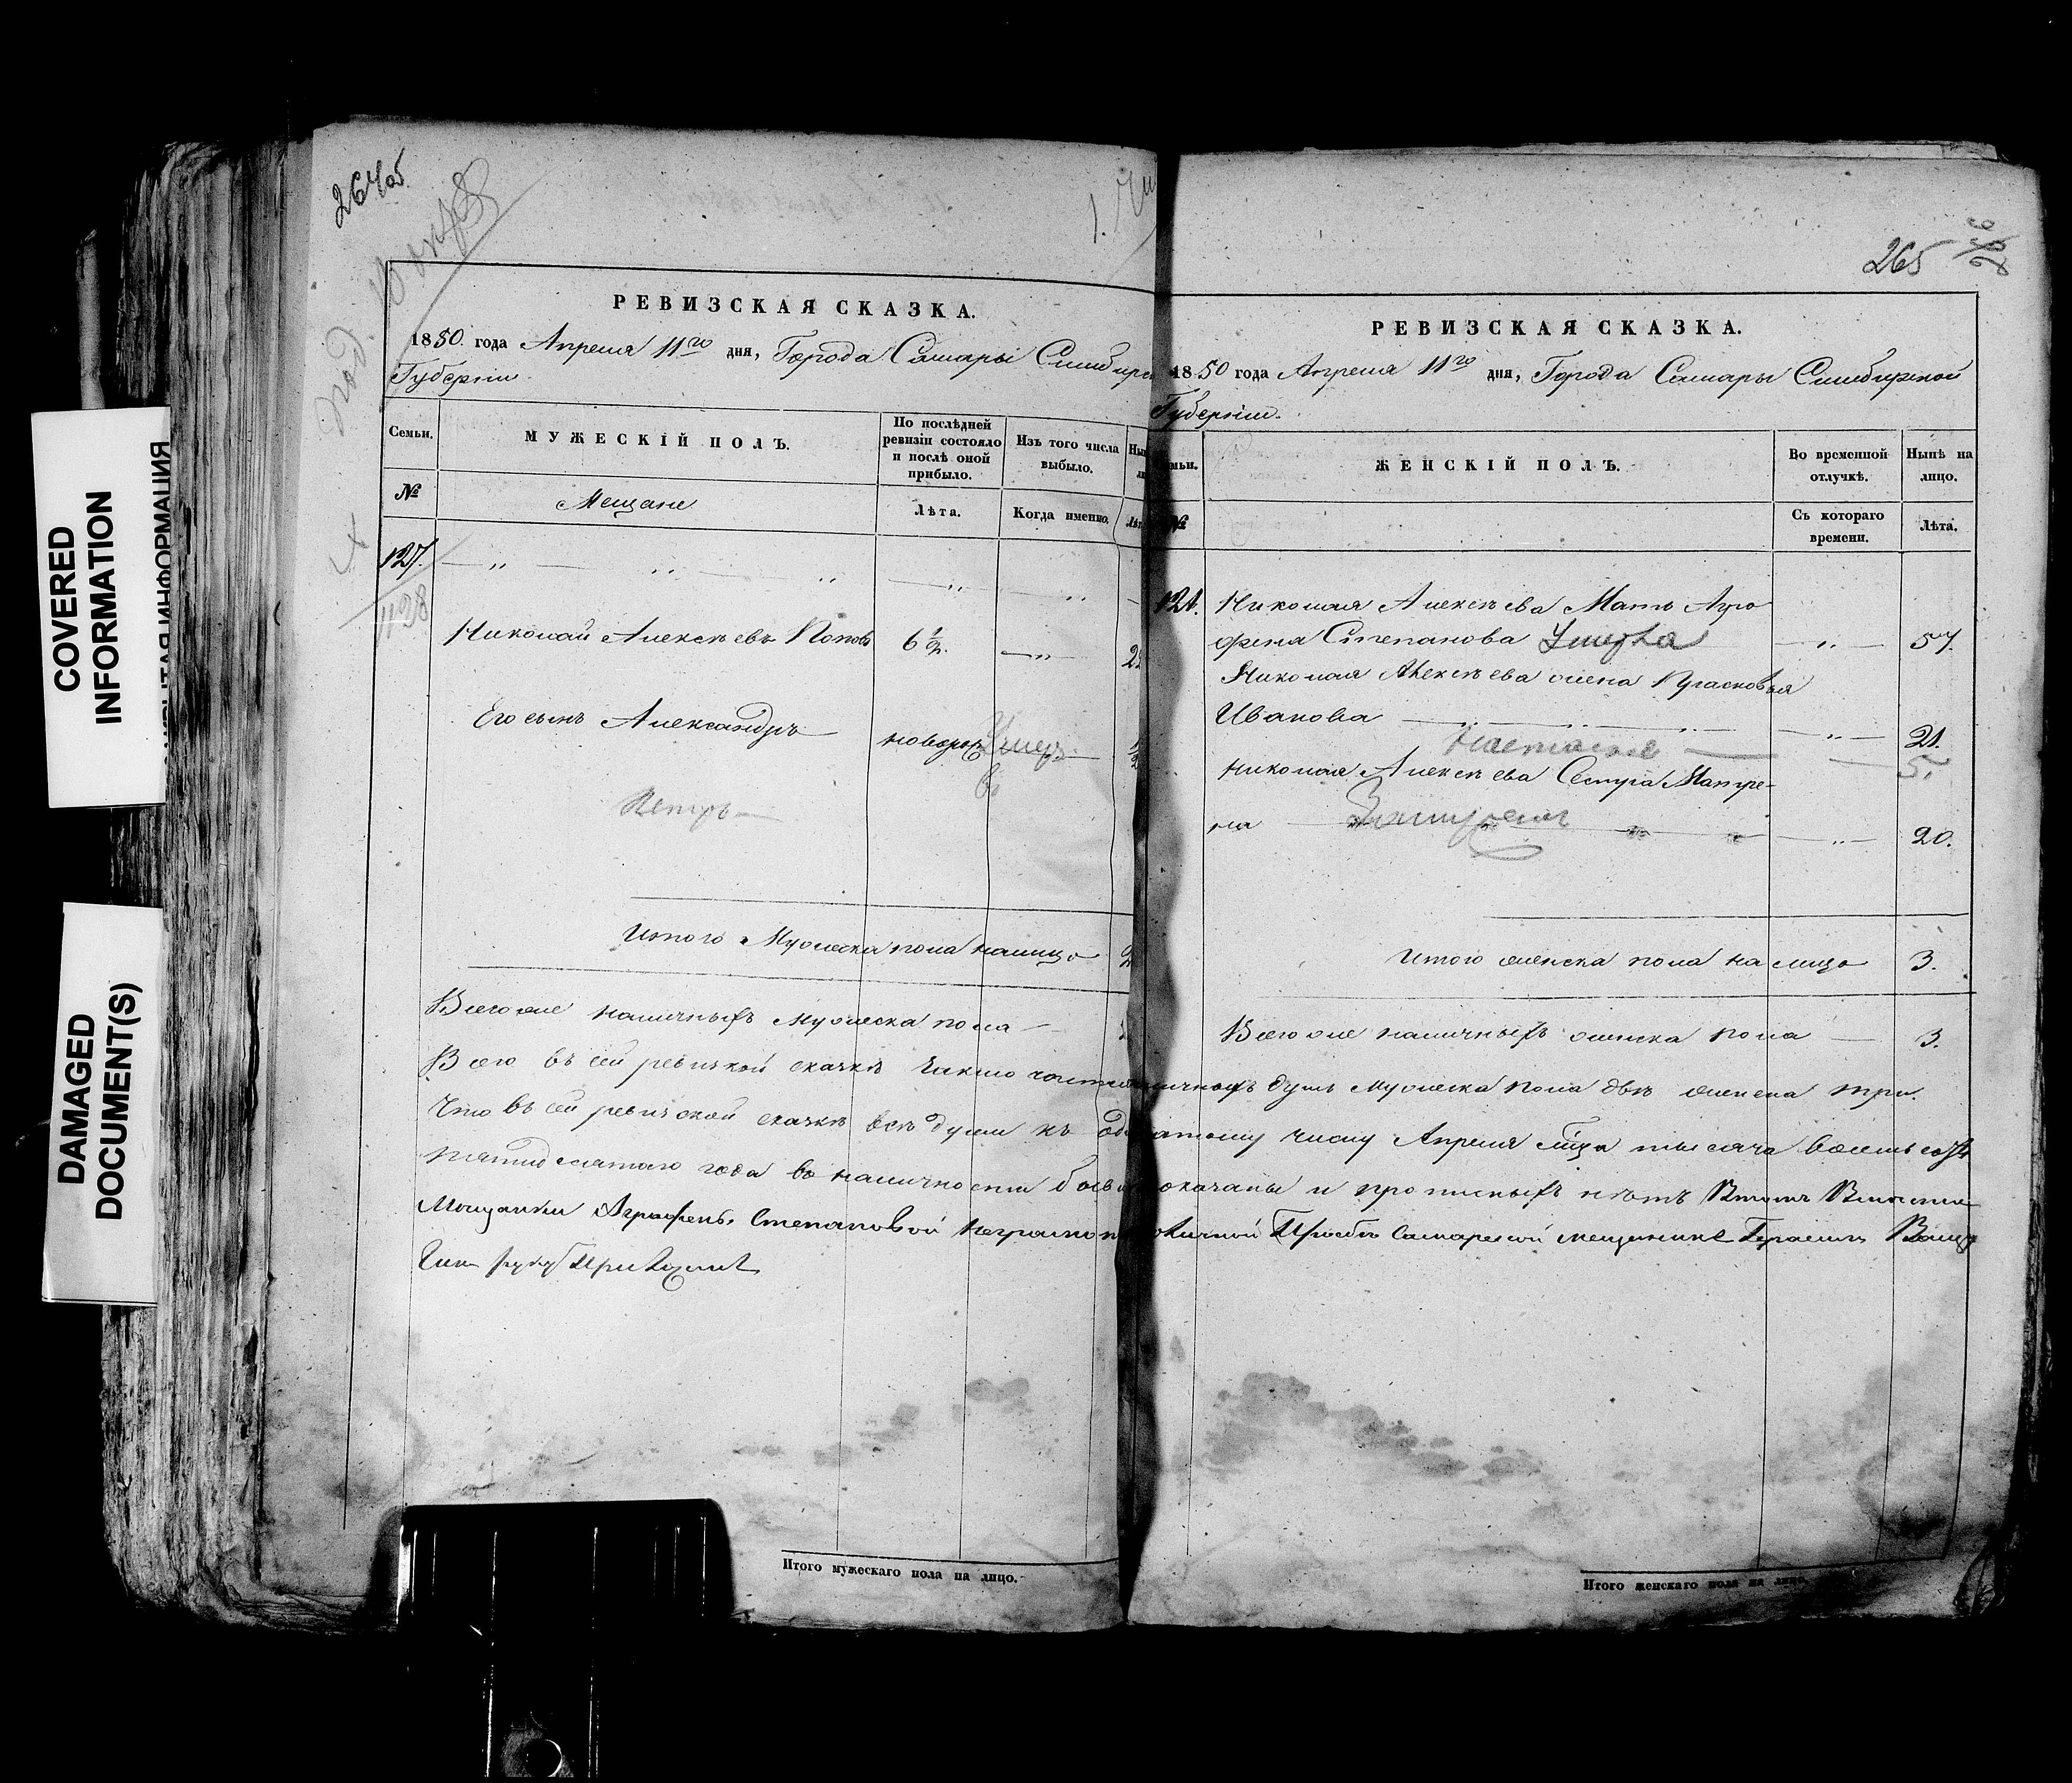 COVERED
INFORMATION
DAMAGED
DOCUMENT(S)
264 об.
РЕВИЗСКАЯ СКАЗКА.
1850. года Апреля 11го дня, Города Самары Симбирс
Губернiи.
Семьи.
МУЖЕСКIЙ ПОЛЪ.
По послѣдней
ревизiи состояло
и послѣ оной
прибыло.
Изъ того числа
выбыло.
№
Мещане
Лѣта.
Когда именно.
127.
1128
Николай Алексѣевъ Поповъ 6 1/2.
Его сынъ Александръ новорож Умеръ
Петръ
Итого Мужеска пола налицо
Всегоже наличныхъ Мужеска пола
265
РЕВИЗСКАЯ СКАЗКА.
1850 года Апреля 11го дня, Города Самары Симбирской
Губернiи.
ЖЕНСКIЙ ПОЛЪ.
Во временной
отлучкѣ.
Нынѣ на
лицо.
№
Съ котораго
времени.
Лѣта.
Николая Алексѣева Мать Агра
фена Степанова Умерла 57.
Николая Алексѣева жена Прасковья
Иванова 21.
Настасья 5.
Николая Алексѣева Сестра Матре-
на 20.
Итого женска пола на лицо 3.
Всегоже наличныхъ женска пола 3.
Всего въ сей ревизкой скаскѣ душъ Мужеска пола двѣ женска три.
Что въ сей ревизской скаскѣ всѣ души къ числу Апреля мѣца тысяча восемь сотъ
пятидесятаго года въ наличности показаны и прописныхъ нѣтъ
Мещанки Аграфены Степановой Самарской мещанинъ Герасимъ
руку Приложилъ
Итого мужескаго пола на лицо.
Итого женскаго пола на лицо